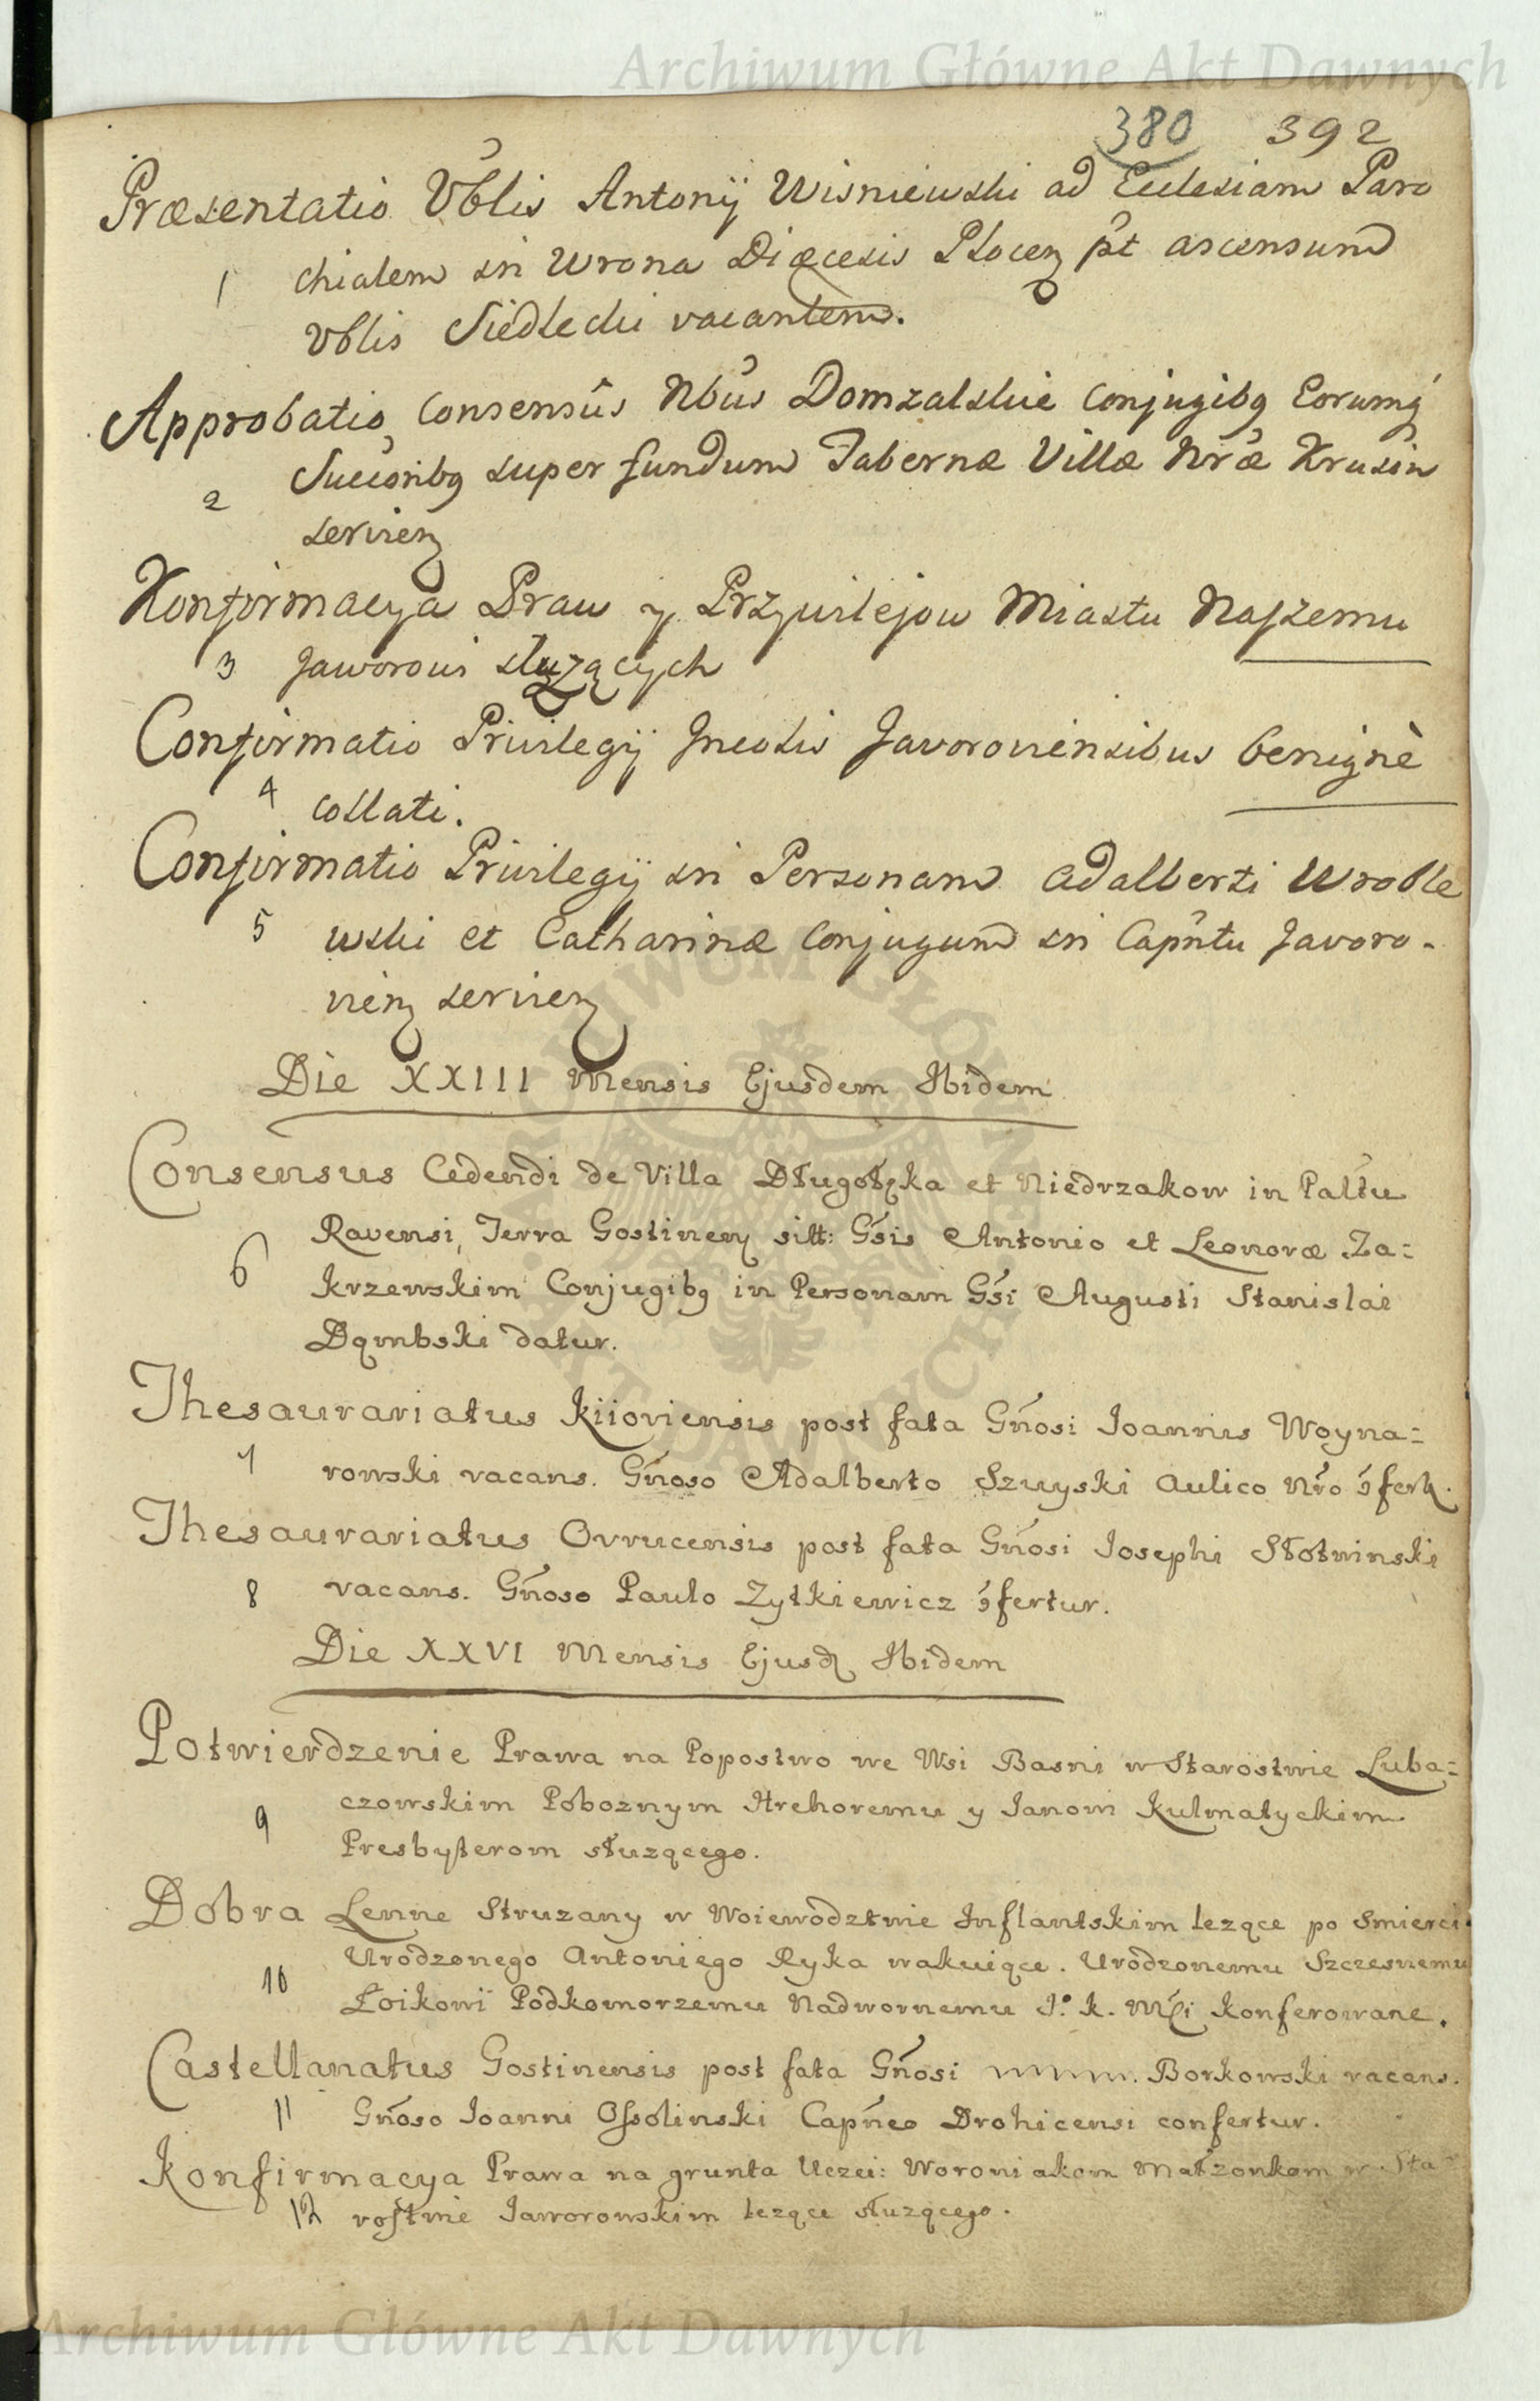 Archiwum Główne Akt Dawnych
380 392
Præsentatio Vblis Antonij Wisniewski ad Ecclesiam Paro
1 chialem in Wrona Diæcesis Plocen pt ascensum
Vblis Siedlecki vacantem.
Approbatio Consensûs Nbus Domzalskie Conjugibq Eorumq
2 Succoribq super fundum Tabernæ Villæ Nræ Krusin
servien
Konfirmacya Praw y Przywilejow Miastu Naszemu
3 Jaworowi służących
Confirmatio Privilegij Incolis Javoroviensibus benignè
4 collati.
Confirmatio Privilegij in Personam Adalberti Wroble
5 wski et Catharinæ Conjugum in Capntu Javoro-
vien servien
Die XXIII Mensis Ejusdem Ibidem
Consensus Cedendi de Villa Długołęka et Niedrzakow in Paltu
Ravensi, Terra Gostinen sitt: Gsis Antonio et Leonoræ Za=
6 krzewskim Conjugibq in Personam Gsi Augusti Stanislai
Dąmbski datur.
Thesaurariatus Kiioviensis post fata Gnosi Joannis Woyna=
7 rowski vacans. Gnoso Adalberto Szuyski Aulico Nro 9fert.
Thesaurariatus Ovrucensis post fata Gnosi Josephi Słotwinski
8 vacans. Gnoso Paulo Zytkiewicz 9fertur.
Die XXVI Mensis Ejusd Ibidem
Potwierdzenie Prawa na Popostwo we Wsi Basni w Starostwie Luba=
9 czowskim Poboznym Hrehoremu y Janowi Kulmatyckim
Presbyterom słuzącego.
Dobra Lenne Struzany w Woiewodztwie Inflantskim lezące po Smierci
Urodzonego Antoniego Ryka wakuiące. Urodzonemu Szczesnemu
10 Łoikowi Podkomorzemu Nadwornemu J. K. Mci konferowane.
Castellanatus Gostinensis post fata Gnosi Borkowski vacans.
11 Gnoso Joanni Ossolinski Capneo Drohicensi confertur.
Konfirmacya Prawa na grunta Uczci: Woroniakom Małzonkom w Sta
12 rostwie Jaworowskim lezące słuzącego.
Archiwum Główne Akt Dawnych